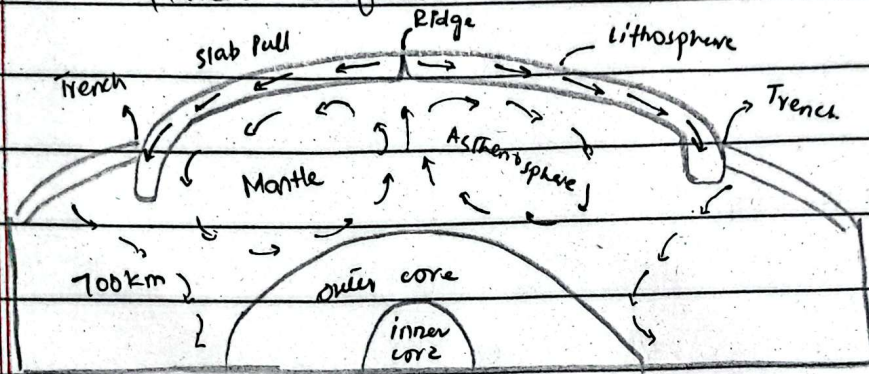 Ridge
Slab Pull
Lithosphere
Trench
Trench
Asthenosphere
Mantle
700km
outer core
inner
core